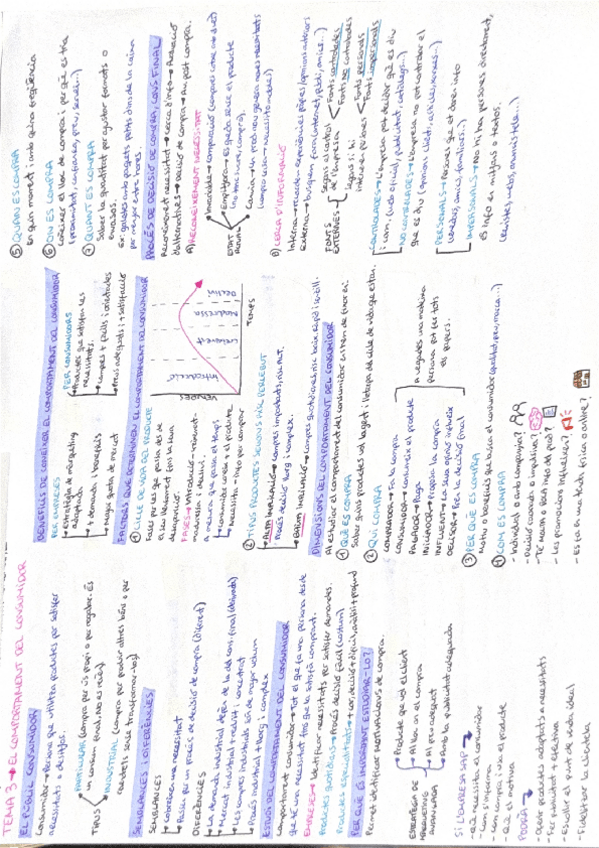 TEMA 3 → EL COMPORTAMENT DEL CONSUMIDOR
EL PÚBLIC CONSUMIDOR
Consumidor → Persona que utilitza productes per satisfer
necessitats o desitjos.
TIPUS
PARTICULAR (compra per ús propi o per regalar. És
un consum final. No es revèn)
INDUSTRIAL (compra per produir altres béns o per
SEMBLANCES I DIFERÈNCIES
SEMBLANCES
- Cobreixen una necessitat
- Passen per un procés de decisió de compra (diferent)
DIFERÈNCIES
- La demanda industrial depèn de la del cons. final (derivada)
- Mercat industrial + reduït i concentrat
- Les compres industrials són de major volum
- Procés industrial + llarg i complex
ESTUDI DEL COMPORTAMENT DEL CONSUMIDOR
Comportament consumidor → Tot el que fa una persona des de
que té una necessitat fins que la satisfà comprant.
EMPRESES → Identificar necessitats per satisfer demandes.
Productes quotidians → Procés decisió fàcil (costum)
PER QUÈ ÉS IMPORTANT ESTUDIAR-LO?
Permet identificar motivacions de compra.
ESTRATÈGIA DE
MÀRQUETING
AVANTATGE
Producte que vol el client
Al lloc on el compra
Al preu adequat
Amb la publicitat adequada
SI L'EMPRESA SAP
- Què necessita el consumidor
- Com s'informa
- Com compra i usa el producte
- Què el motiva
PODRÀ
- Oferir productes adaptats a necessitats
- Fer publicitat + efectiva
- Escollir el punt de venda ideal
- Fidelitzar la clientela
BENEFICIS DE CONÈIXER EL COMPORTAMENT DEL CONSUMIDOR
PER EMPRESES
Estratègia de màrqueting
adaptada.
+ demanda i beneficis
Major quota de mercat
PER CONSUMIDORS
Productes que satisfan les
necessitats.
Compres + fàcils i orientades
Preus adequats i + satisfacció
FACTORS QUE DETERMINEN EL COMPORTAMENT DEL CONSUMIDOR
① CICLE DE VIDA DEL PRODUCTE
Fases per les que passa des de
el seu llançament fins la seva
desaparició.
FASES → Introducció - creixement -
maduresa i declivi.
A mesura que passa el temps
Consumidor coneix + el producte
Necessita - info per comprar
VENDES
Introducció
Creixement
Maduresa
Declivi
TEMPS
② TIPUS PRODUCTES SEGONS RISC PERCEBUT
ALTA IMPLICACIÓ → Compres importants, risc alt.
Procés decisió llarg i complex.
BAIXA IMPLICACIÓ → Compres quotidianes, risc baix, ràpid i senzill.
DIMENSIONS DEL COMPORTAMENT DEL CONSUMIDOR
Al estudiar el comportament del consumidor s'han de fixar en:
① QUÈ ES COMPRA
Saber quins productes vol la gent i l'etapa de cicle de vida que estan.
② QUI COMPRA
COMPRADOR → Fa la compra
CONSUMIDOR → Consumeix el producte
PAGADOR → Paga
INICIADOR → Proposa la compra
INFLUENT → La seva opinió influeix
DECISOR → Pren la decisió final
A vegades una mateixa
persona pot fer tots
els papers.
③ PER QUÈ ES COMPRA
Motiu o beneficis que busca el consumidor (qualitat, preu, marca...)
④ COM ES COMPRA
- Individual o amb companyia?
- Decisió raonada o impulsiva?
- Té molta o poca info del prod?
- Les promocions influeixen?
- Es fa en una tenda física o online?
⑤ QUAN ES COMPRA
En quin moment i amb quina freqüència
⑥ ON ES COMPRA
Conèixer el lloc de compra i per què es tria
(proximitat, confiança, preu, servei...)
⑦ QUANT ES COMPRA
Saber la quantitat per ajustar formats o
envasos.
Ex: galetes amb paquets petits dins de la caixa
per menjar entre hores
PROCÉS DE DECISIÓ DE COMPRA, CONS. FINAL
Reconeixement necessitat → Cerca d'info → Avaluació
d'alternatives → Decisió de compra → Av. post compra.
A) RECONEIXEMENT NECESSITAT
B) CERCA D'INFORMACIÓ
Interna → records - experiències pròpies / opinions anteriors
Externa → busquem fora (internet, publi, amics...)
FONTS
EXTERNES
Segons el control
de l'empresa
Fonts controlades
Fonts no controlades
Segons si hi
intervenen persones
Fonts personals
Fonts impersonals
CONTROLADES → L'empresa pot decidir què es diu
i com. (web oficial, publicitat, catàlegs...)
NO CONTROLADES → L'empresa no pot controlar el
que es diu (opinions clients, crítiques, xarxes...)
PERSONALS → Persones que et donen info
(venedors, amics, familiars...)
IMPERSONALS → No hi ha persones directament,
és info en mitjans o textos.
(revistes, webs, anuncis tele...)